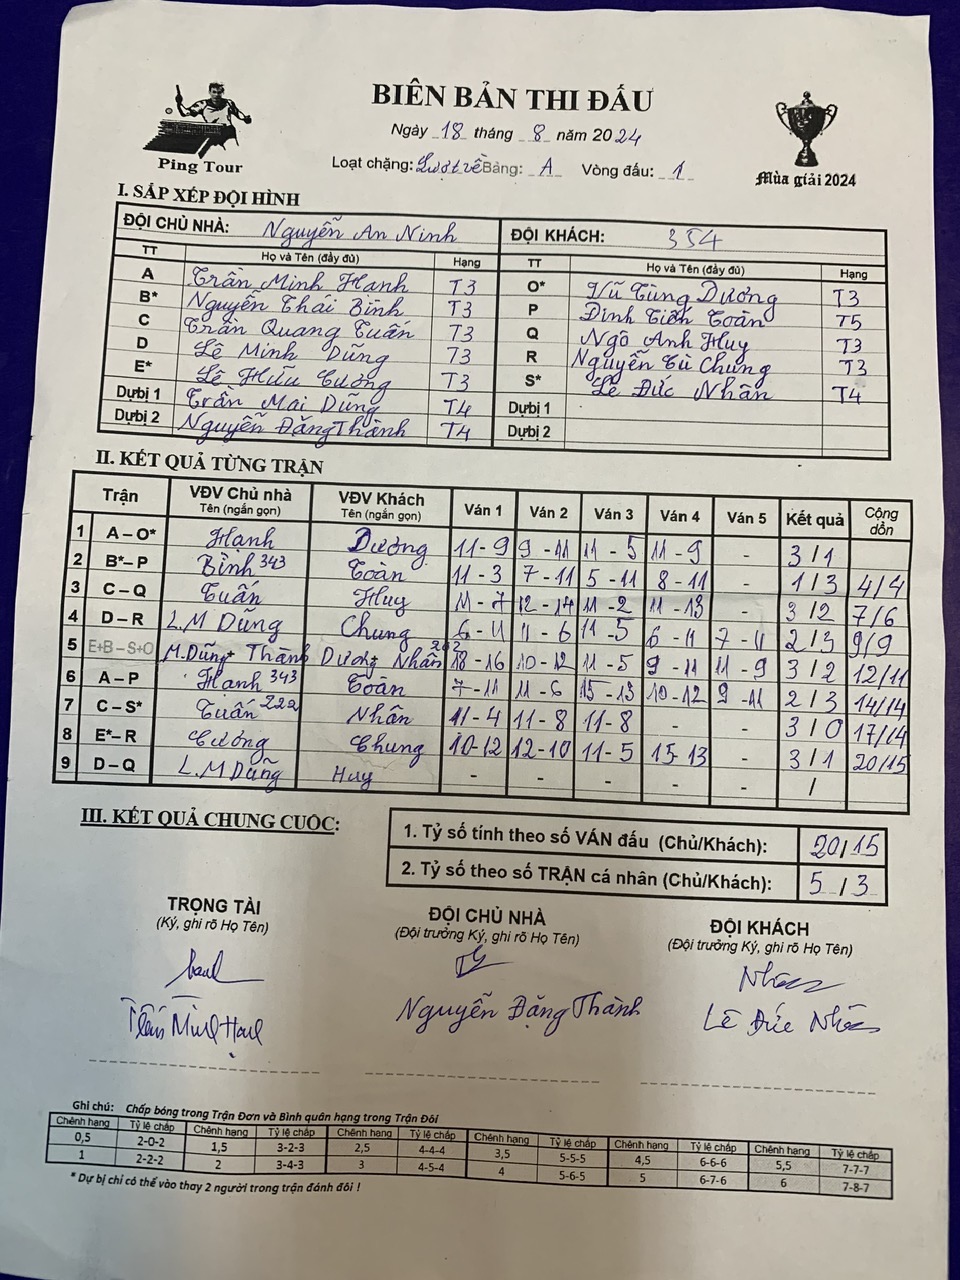 BIÊN BẢN THI ĐẤU
Ngày 18 tháng 8 năm 2024
Ping Tour
Loạt chặng: Lượt về Bảng: A Vòng đấu: 1
Mùa giải 2024
I. SẮP XẾP ĐỘI HÌNH
ĐỘI CHỦ NHÀ: Nguyễn An Ninh ĐỘI KHÁCH: 354
TT Họ và Tên (đầy đủ) Hạng TT Họ và Tên (đầy đủ) Hạng
A Trần Minh Hạnh T3 O* Vũ Tùng Dương T3
B* Nguyễn Thái Bình T3 P Đinh Tiến Toàn T5
C Trần Quang Tuấn T3 Q Ngô Anh Huy T3
D Lê Minh Dũng T3 R Nguyễn Cù Chung T3
E* Lê Hữu Cương T3 S* Lê Đức Nhân T4
Dự bị 1 Trần Mai Dũng T4 Dự bị 1
Dự bị 2 Nguyễn Đăng Thành T4 Dự bị 2
II. KẾT QUẢ TỪNG TRẬN
Trận VĐV Chủ nhà Tên (ngắn gọn) VĐV Khách Tên (ngắn gọn) Ván 1 Ván 2 Ván 3 Ván 4 Ván 5 Kết quả Cộng dồn
1 A – O* Hạnh Dương 11 - 9 9 - 11 11 - 5 11 - 9 - 3 / 1
2 B* – P Bình 343 Toàn 11 - 3 7 - 11 5 - 11 8 - 11 - 1 / 3 4/4
3 C – Q Tuấn Huy 11 - 7 12 - 14 11 - 2 11 - 13 - 3 / 2 7/6
4 D – R L.M Dũng Chung 6 - 11 11 - 6 11 - 5 6 - 11 7 - 11 2 / 3 9/9
5 E+B – S+O M.Dũng + Thành Dương + Nhân 18 - 16 10 - 12 11 - 5 9 - 11 11 - 9 3 / 2 12/11
6 A – P Hạnh 343 Toàn 7 - 11 11 - 6 15 - 13 10 - 12 9 - 11 2 / 3 14/14
7 C – S* Tuấn 222 Nhân 11 - 4 11 - 8 11 - 8 - - 3 / 0 17/14
8 E* – R Cương Chung 10 - 12 12 - 10 11 - 5 15 - 13 - 3 / 1 20/15
9 D – Q L.M Dũng Huy - - - - - /
III. KẾT QUẢ CHUNG CUỘC:
1. Tỷ số tính theo số VÁN đấu (Chủ/Khách): 20/15
2. Tỷ số theo số TRẬN cá nhân (Chủ/Khách): 5/3
TRỌNG TÀI ĐỘI CHỦ NHÀ ĐỘI KHÁCH
(Ký, ghi rõ Họ Tên) (Đội trưởng Ký, ghi rõ Họ Tên) (Đội trưởng Ký, ghi rõ Họ Tên)
Nhân
Trần Minh Hạnh Nguyễn Đăng Thành Lê Đức Nhân
Ghi chú: Chấp bóng trong Trận Đơn và Bình quân hạng trong Trận Đôi
Chênh hạng Tỷ lệ chấp Chênh hạng Tỷ lệ chấp Chênh hạng Tỷ lệ chấp Chênh hạng Tỷ lệ chấp Chênh hạng Tỷ lệ chấp Chênh hạng Tỷ lệ chấp
0,5 2-0-2 1,5 3-2-3 2,5 4-4-4 3,5 5-5-5 4,5 6-6-6 5,5 7-7-7
1 2-2-2 2 3-4-3 3 4-5-4 4 5-6-5 5 6-7-6 6 7-8-7
* Dự bị chỉ có thể vào thay 2 người trong trận đánh đôi !